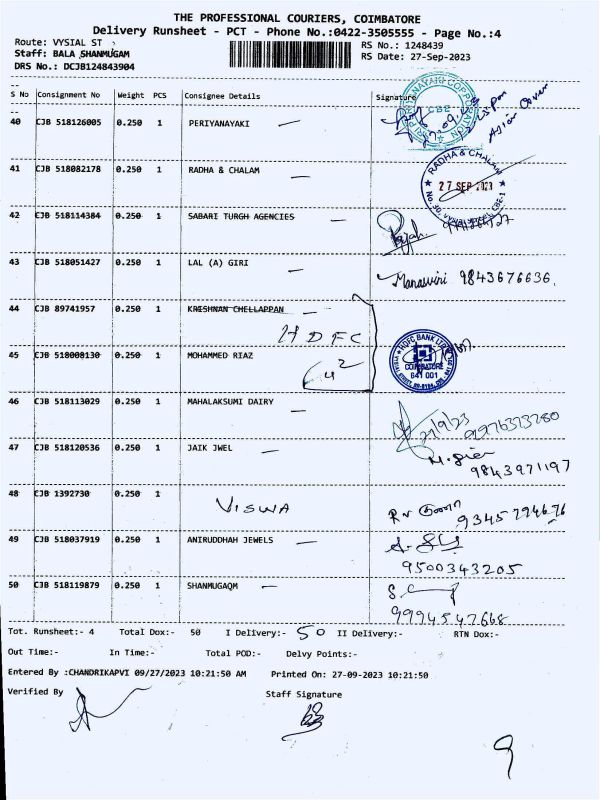 THE PROFESSIONAL COURIERS, COIMBATORE
Delivery Runsheet - PCT - Phone No.:0422-3505555 - Page No.:4
Route: VYSIAL ST
RS No.: 1248439
Staff: BALA SHANMUGAM
RS Date: 27-Sep-2023
DRS No.: DCJB124843904
S No Consignment No Weight PCS Consignee Details Signature
40 CJB 518126005 0.250 1 PERIYANAYAKI
41 CJB 518082178 0.250 1 RADHA & CHALAM
RADHA & CHALAM
27 SEP 2023
42 CJB 518114384 0.250 1 SABARI TURGH AGENCIES
43 CJB 518051427 0.250 1 LAL (A) GIRI
Manaswini 9843676636.
44 CJB 89741957 0.250 1 KRISHNAN CHELLAPPAN
HDFC
HDFC BANK LTD
COIMBATORE
641 001
45 CJB 518008130 0.250 1 MOHAMMED RIAZ
46 CJB 518113029 0.250 1 MAHALAKSUMI DAIRY
47 CJB 518120536 0.250 1 JAIK JWEL
9843971197
48 CJB 1392730 0.250 1 VISWA
9345794676
49 CJB 518037919 0.250 1 ANIRUDDHAH JEWELS
9500343205
50 CJB 518119879 0.250 1 SHANMUGAQM
9994547668
Tot. Runsheet:- 4 Total Dox:- 50 I Delivery:- 50 II Delivery:- RTN Dox:-
Out Time:- In Time:- Total POD:- Delvy Points:-
Entered By :CHANDRIKAPVI 09/27/2023 10:21:50 AM Printed On: 27-09-2023 10:21:50
Verified By Staff Signature
9